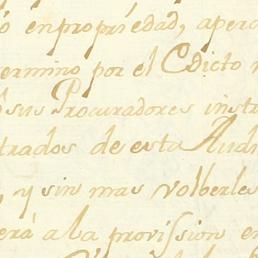 ó en propriedad, aperc
ermino por el Edicto
sus Procuradores instr
trados de esta Aud
, y sin mas volberles
erà a la provission en